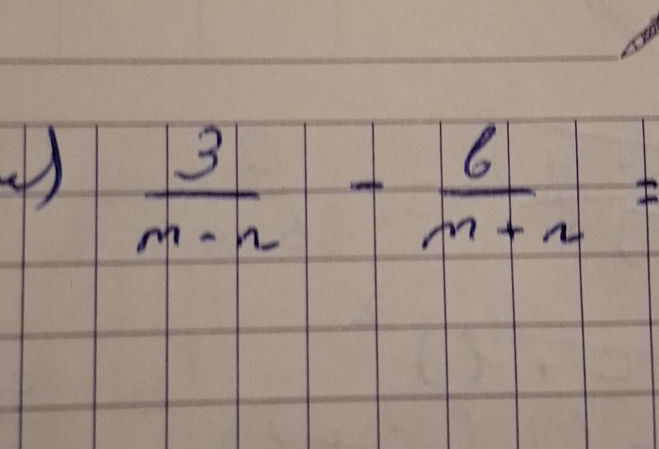 3/(m - n) - 6/(m + n) =